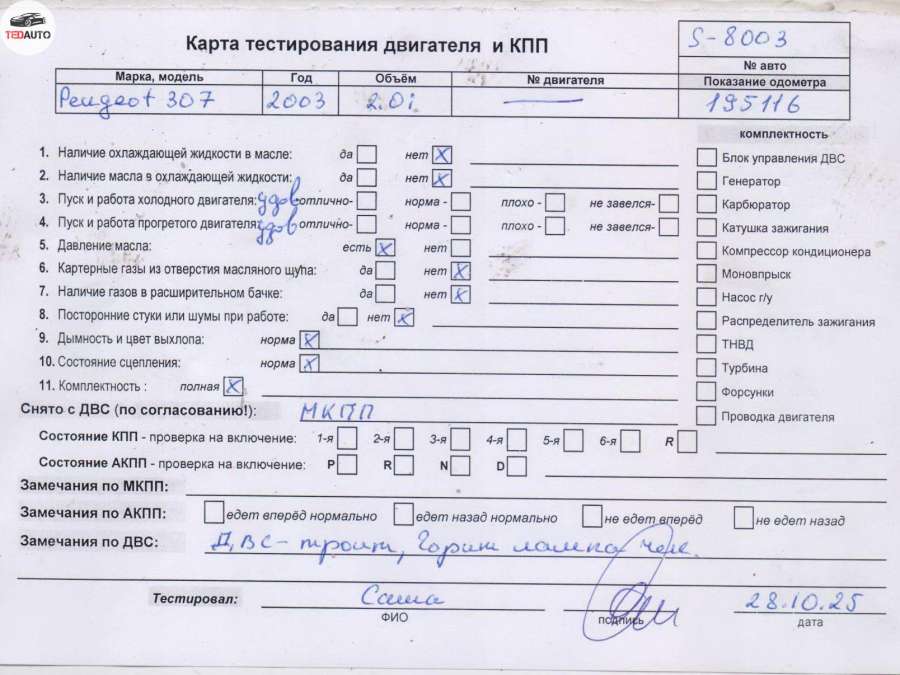 TEDAUTO
Карта тестирования двигателя и КПП
S-8003
№ авто
Марка, модель Год Объём № двигателя Показание одометра
Peugeot 307 2003 2.0i — 195116
комплектность
1. Наличие охлаждающей жидкости в масле: да нет X
Блок управления ДВС
2. Наличие масла в охлаждающей жидкости: да нет X
Генератор
3. Пуск и работа холодного двигателя: удов отлично- норма - плохо - не завелся-
Карбюратор
4. Пуск и работа прогретого двигателя: удов отлично- норма - плохо - не завелся-
Катушка зажигания
5. Давление масла: есть X нет
Компрессор кондиционера
6. Картерные газы из отверстия масляного щупа: да нет X
Моновпрыск
7. Наличие газов в расширительном бачке: да нет X
Насос г/у
8. Посторонние стуки или шумы при работе: да нет X
Распределитель зажигания
9. Дымность и цвет выхлопа: норма X
ТНВД
10. Состояние сцепления: норма X
Турбина
11. Комплектность : полная X
Форсунки
Снято с ДВС (по согласованию!): МКПП
Проводка двигателя
Состояние КПП - проверка на включение: 1-я 2-я 3-я 4-я 5-я 6-я R
Состояние АКПП - проверка на включение: P R N D
Замечания по МКПП:
Замечания по АКПП: едет вперёд нормально едет назад нормально не едет вперёд не едет назад
Замечания по ДВС: ДВС - троит, Горит лампа чек.
Тестировал: Саша 28.10.25
ФИО подпись дата